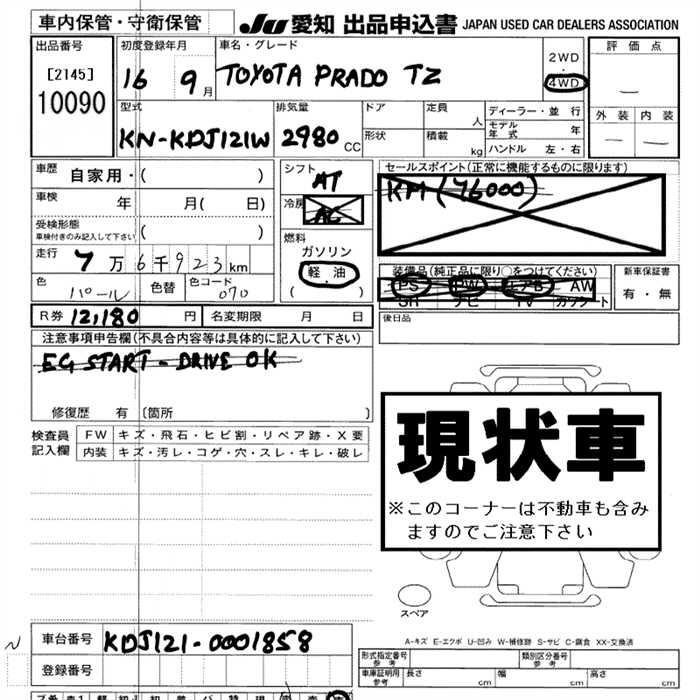 車内保管・守衛保管 JU 愛知 出品申込書 JAPAN USED CAR DEALERS ASSOCIATION
出品番号 [2145] 10090
初度登録年月 16 9月
車名・グレード TOYOTA PRADO TZ
2WD・4WD
評価点 —
外装 — 内装 —
型式 KN-KDJ121W
排気量 2980 CC
ドア 形状
定員 人
積載 kg
ディーラー・並行
モデル年式 年
ハンドル 左・右
車歴 自家用・( )
車検 年 月( 日)
受検形態 車検付きのみ記入して下さい ( )
走行 7万6千923km
色 パール 色替 色コード 070
シフト AT
冷房 AC
燃料 ガソリン 軽・油 ( )
セールスポイント(正常に機能するものに限ります)
KM (76000)
装備品(純正品に限り○をつけてください)
PS PW エアB AW
SR ナビ TV カワシート
新車保証書 有・無
後日品
R券 12,180円 名変期限 月 日
注意事項申告欄(不具合内容等は具体的に記入して下さい)
EG START - DRIVE OK
修復歴 有 〔箇所 〕
検査員記入欄
FW キズ・飛石・ヒビ割・リペア跡・X要
内装 キズ・汚レ・コゲ・穴・スレ・キレ・破レ
現状車
※このコーナーは不動車も含み
ますのでご注意下さい
スペア
A-キズ E-エクボ U-凹み W-補修跡 S-サビ C-腐食 XX-交換済
車台番号 KDJ121-0001858
登録番号
形式指定番号 参考 類別区分番号 参考
車庫証明用 参考 長さ cm 幅 cm 高さ cm